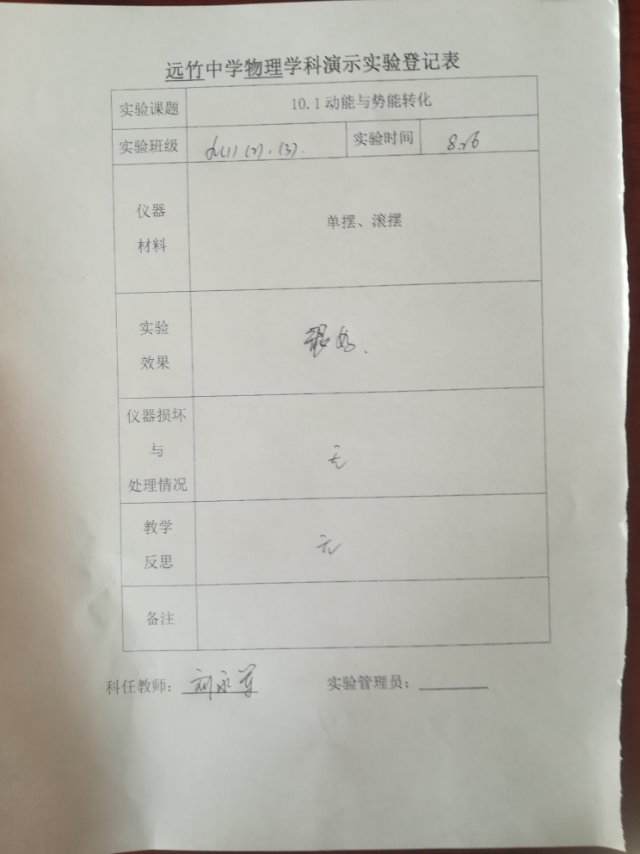 远竹中学物理学科演示实验登记表
实验课题 10.1动能与势能转化
实验班级 九(1)(2)、(3). 实验时间 8.26
仪器
材料
单摆、滚摆
实验
效果
很好.
仪器损坏
与
处理情况
无
教学
反思
无
备注
科任教师：刘永军 实验管理员：